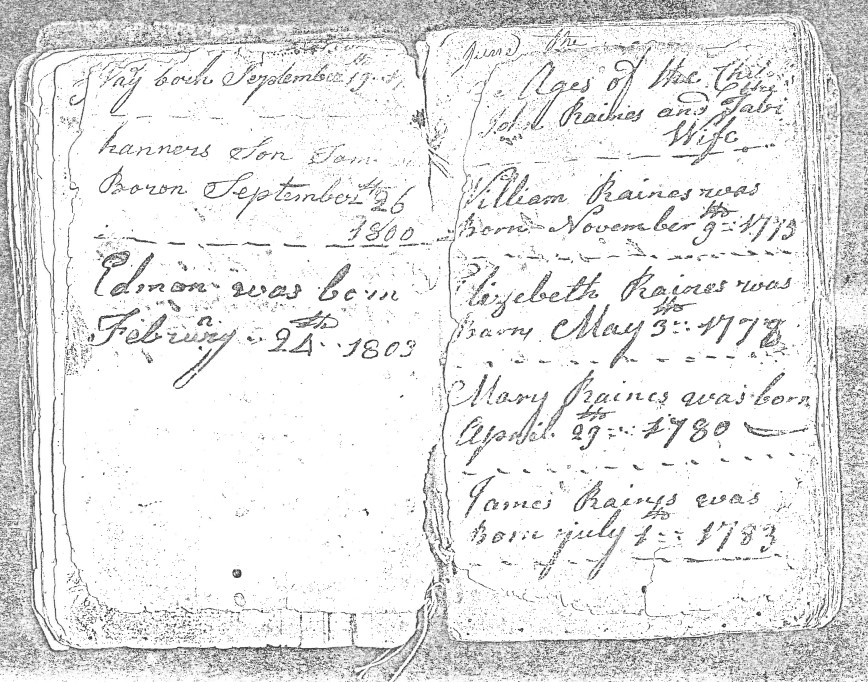 Vaj born September 19th
hanners Son Sam
Boron September 26th
1800
Edmon was born
Februry 24th 1803
June the
Ages of the Chil
John Raines and Tabi
Wife
William Raines was
Born November 9th 1773
Elizebeth Raines was
Born May 3th 1778
Mary Raines was born
April 29th 1780
James Raines was
Born july 1th 1783